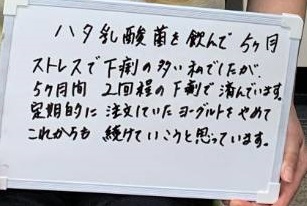 ハタ乳酸菌を飲んで 5ヶ月
ストレスで下痢の多い私でしたが
5ヶ月間 2回程の下痢で済んでいます。
定期的に注文していたヨーグルトをやめて
これからも続けていこうと思っています。